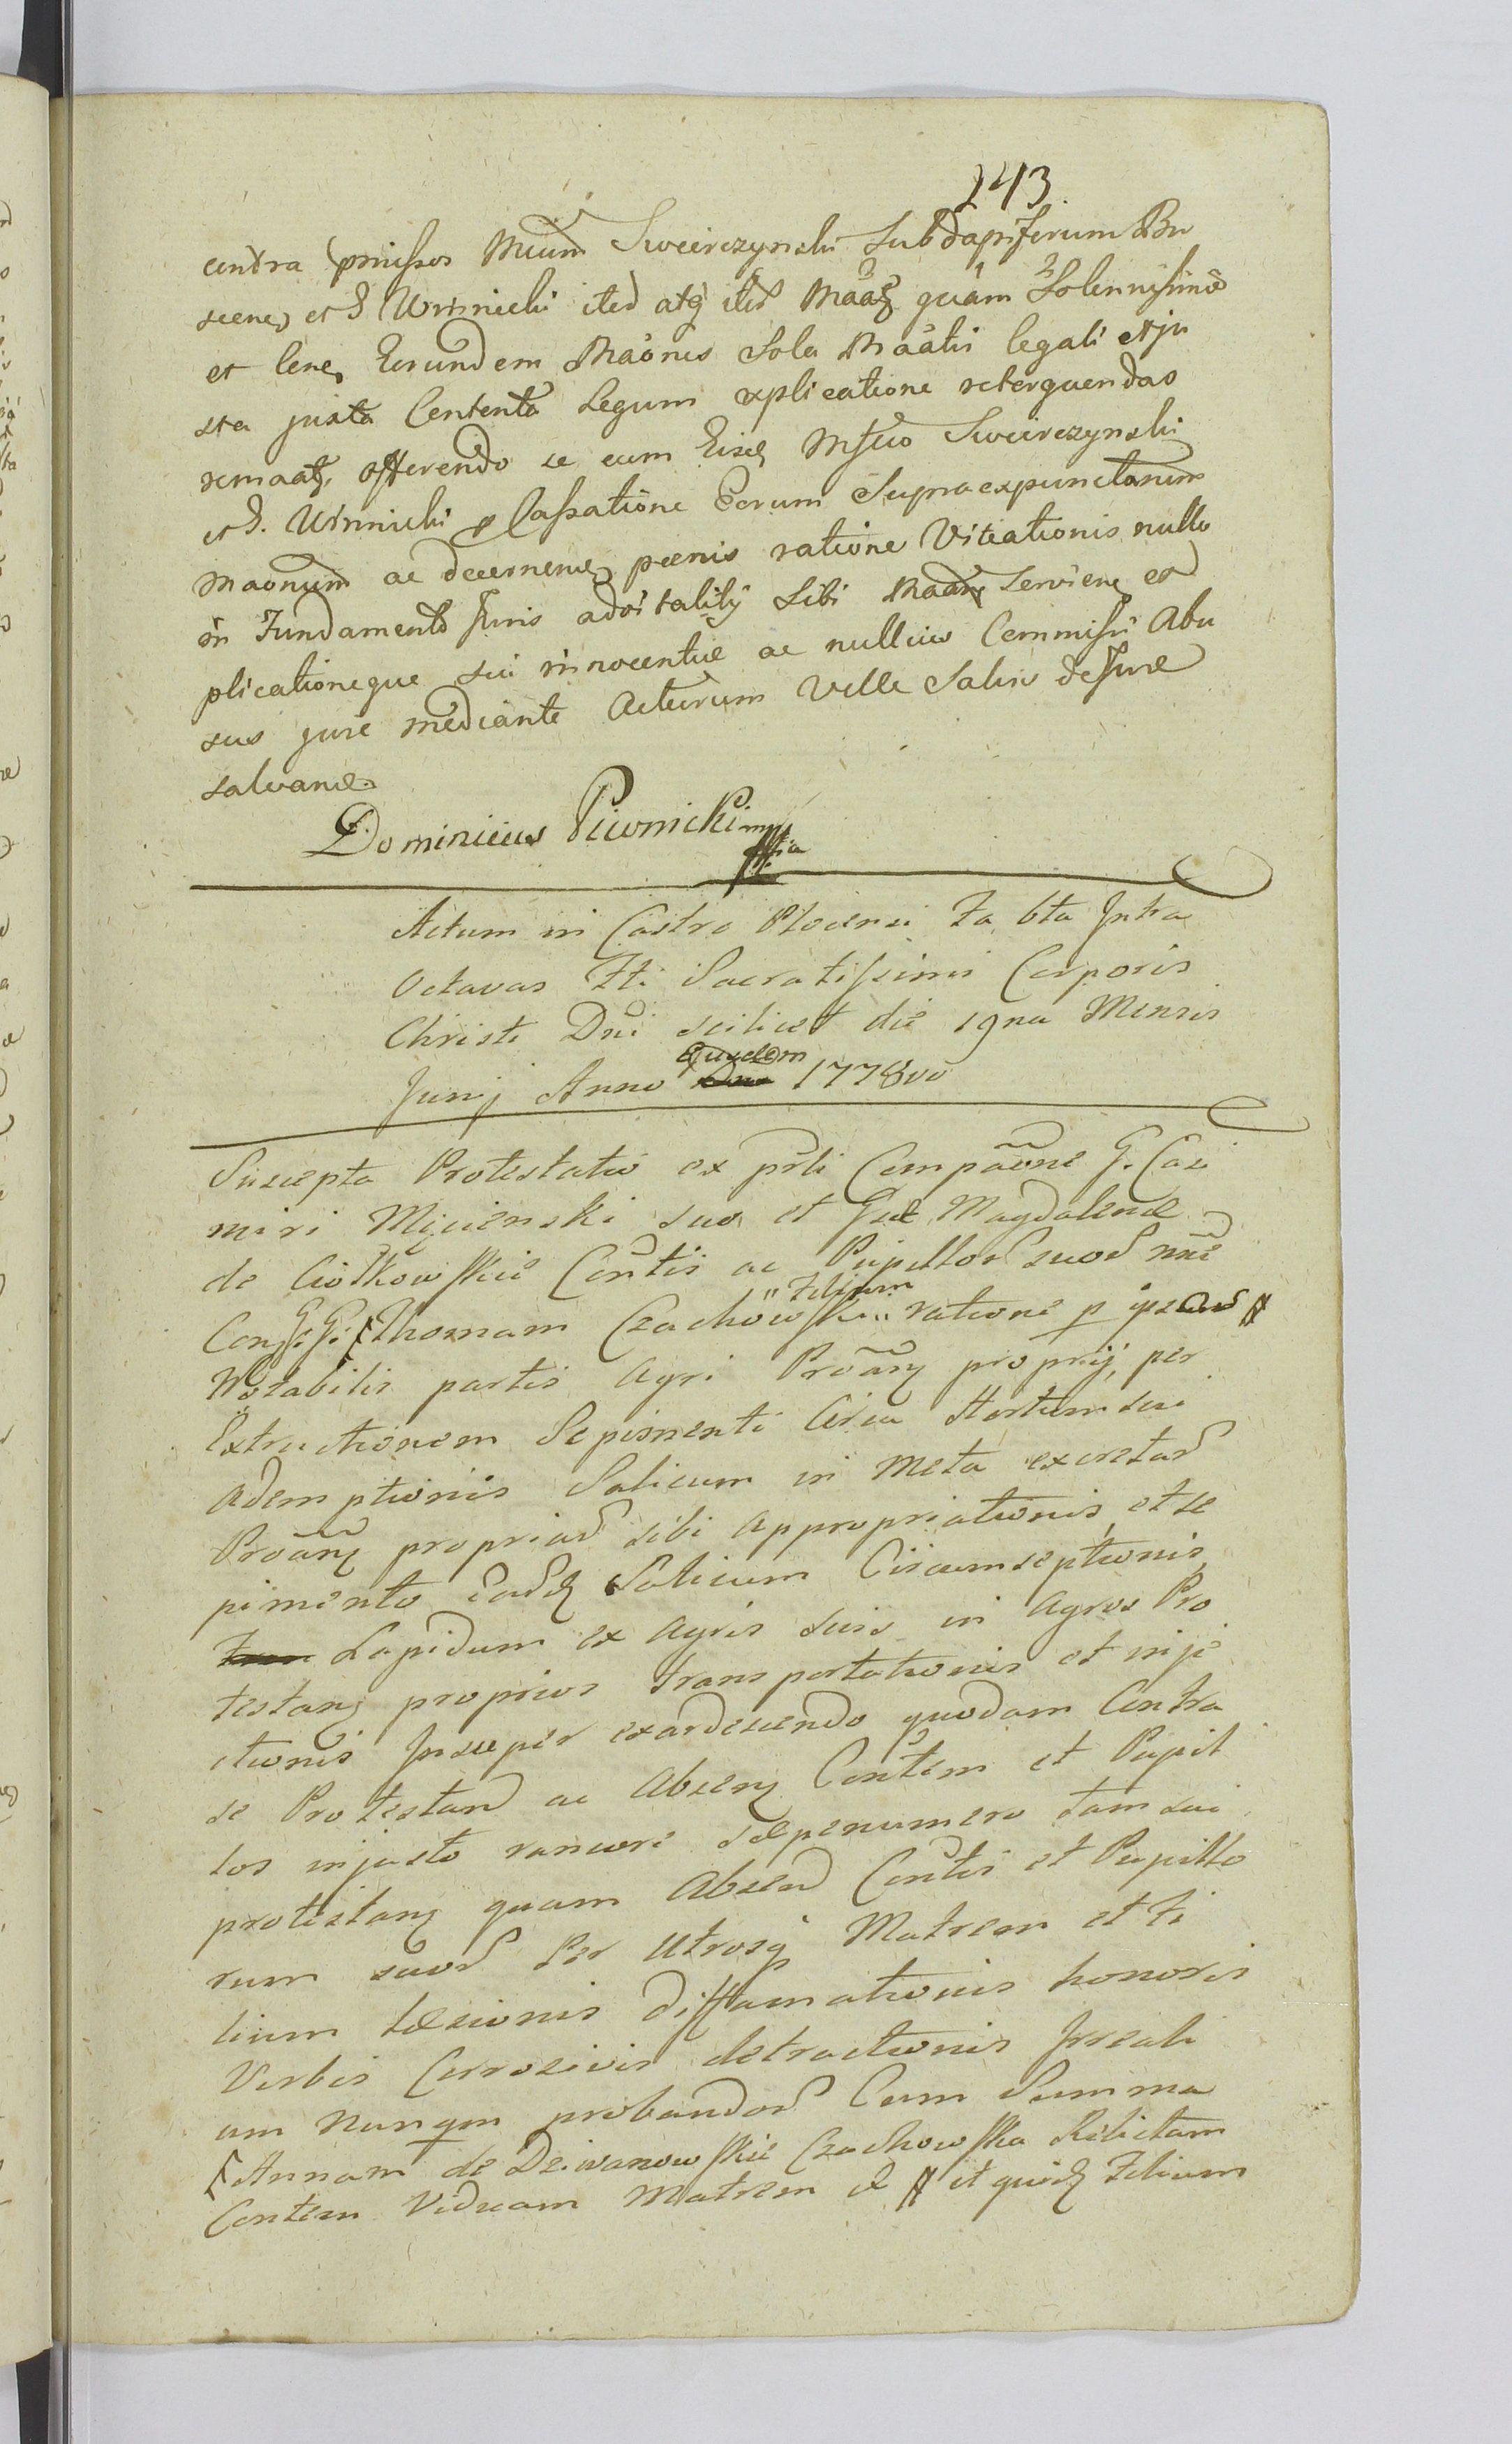 243.
contra praemissos Mcum Swierczynski Subdapiferum Bu
scens et G Winnicki ited atq ited Maata quam Solennissime
et bene Eorundem Maones Sola Maatis legali et ju
sta juxta Contenta Legum explicatione retorquendas
remaats offerendo se cum Eisd Mfico Swierczynski
et G. Winnicki p Cassatione Eorum Supraexpunctarum
Maonum ac decernen poenis ratione Vitiationis nullo
in Fundamento Juris Sibi Maans Serviens et
plicationeque sui innocentiae ac nullius Commissi Abu
sus jure mediante Acturum Velle Salvis de Jure
salvand.
Dominicus Piwnicki mp
Actum in Castro Plocensi Fa 6ta Intra
Octavas Fti Sacratissimi Corporis
Christi Dni scilicet die 19na Mensis
Junij Anno Dni Ejusdem 1778vo
Suscepta Protestatio ex prsli Compaone G. Casi
miri Mycienski suo et Gsae Magdalenae
de Ciołkowskie Contis ac Pupillor suor nne
Con. G. G. Thomam Czachowski "Filium" ratione p ipsum #
Notabilis partis Agri Proans proprij per
Extructionem Sepimenti Circa Hortum sui
Ademptionis Salicum in Meta excretar
Proans propriar sibi Appropriationis et se
pimento Eard Salicum Circumseptionis
Lapidum ex Agris suis in Agros Pro
testans proprios transportationis et inje
ctionis Insuper exardescendo quodam Contra
se Protestan ac Absens Contem et Pupil
los injusto rancore saepenumero tam sui
protestans quam Absen Contis et Pupillo
rum suor Per Utrosq Matrem et Fi
lium laesionis diffamationis honoris
Verbis Corrosivis detractionis Irreali
um nunqm probandor Cum Summa
[Annam de Dziwanowskie Czachowska Relictam
Contem Viduam Matrem et # et quid Filium